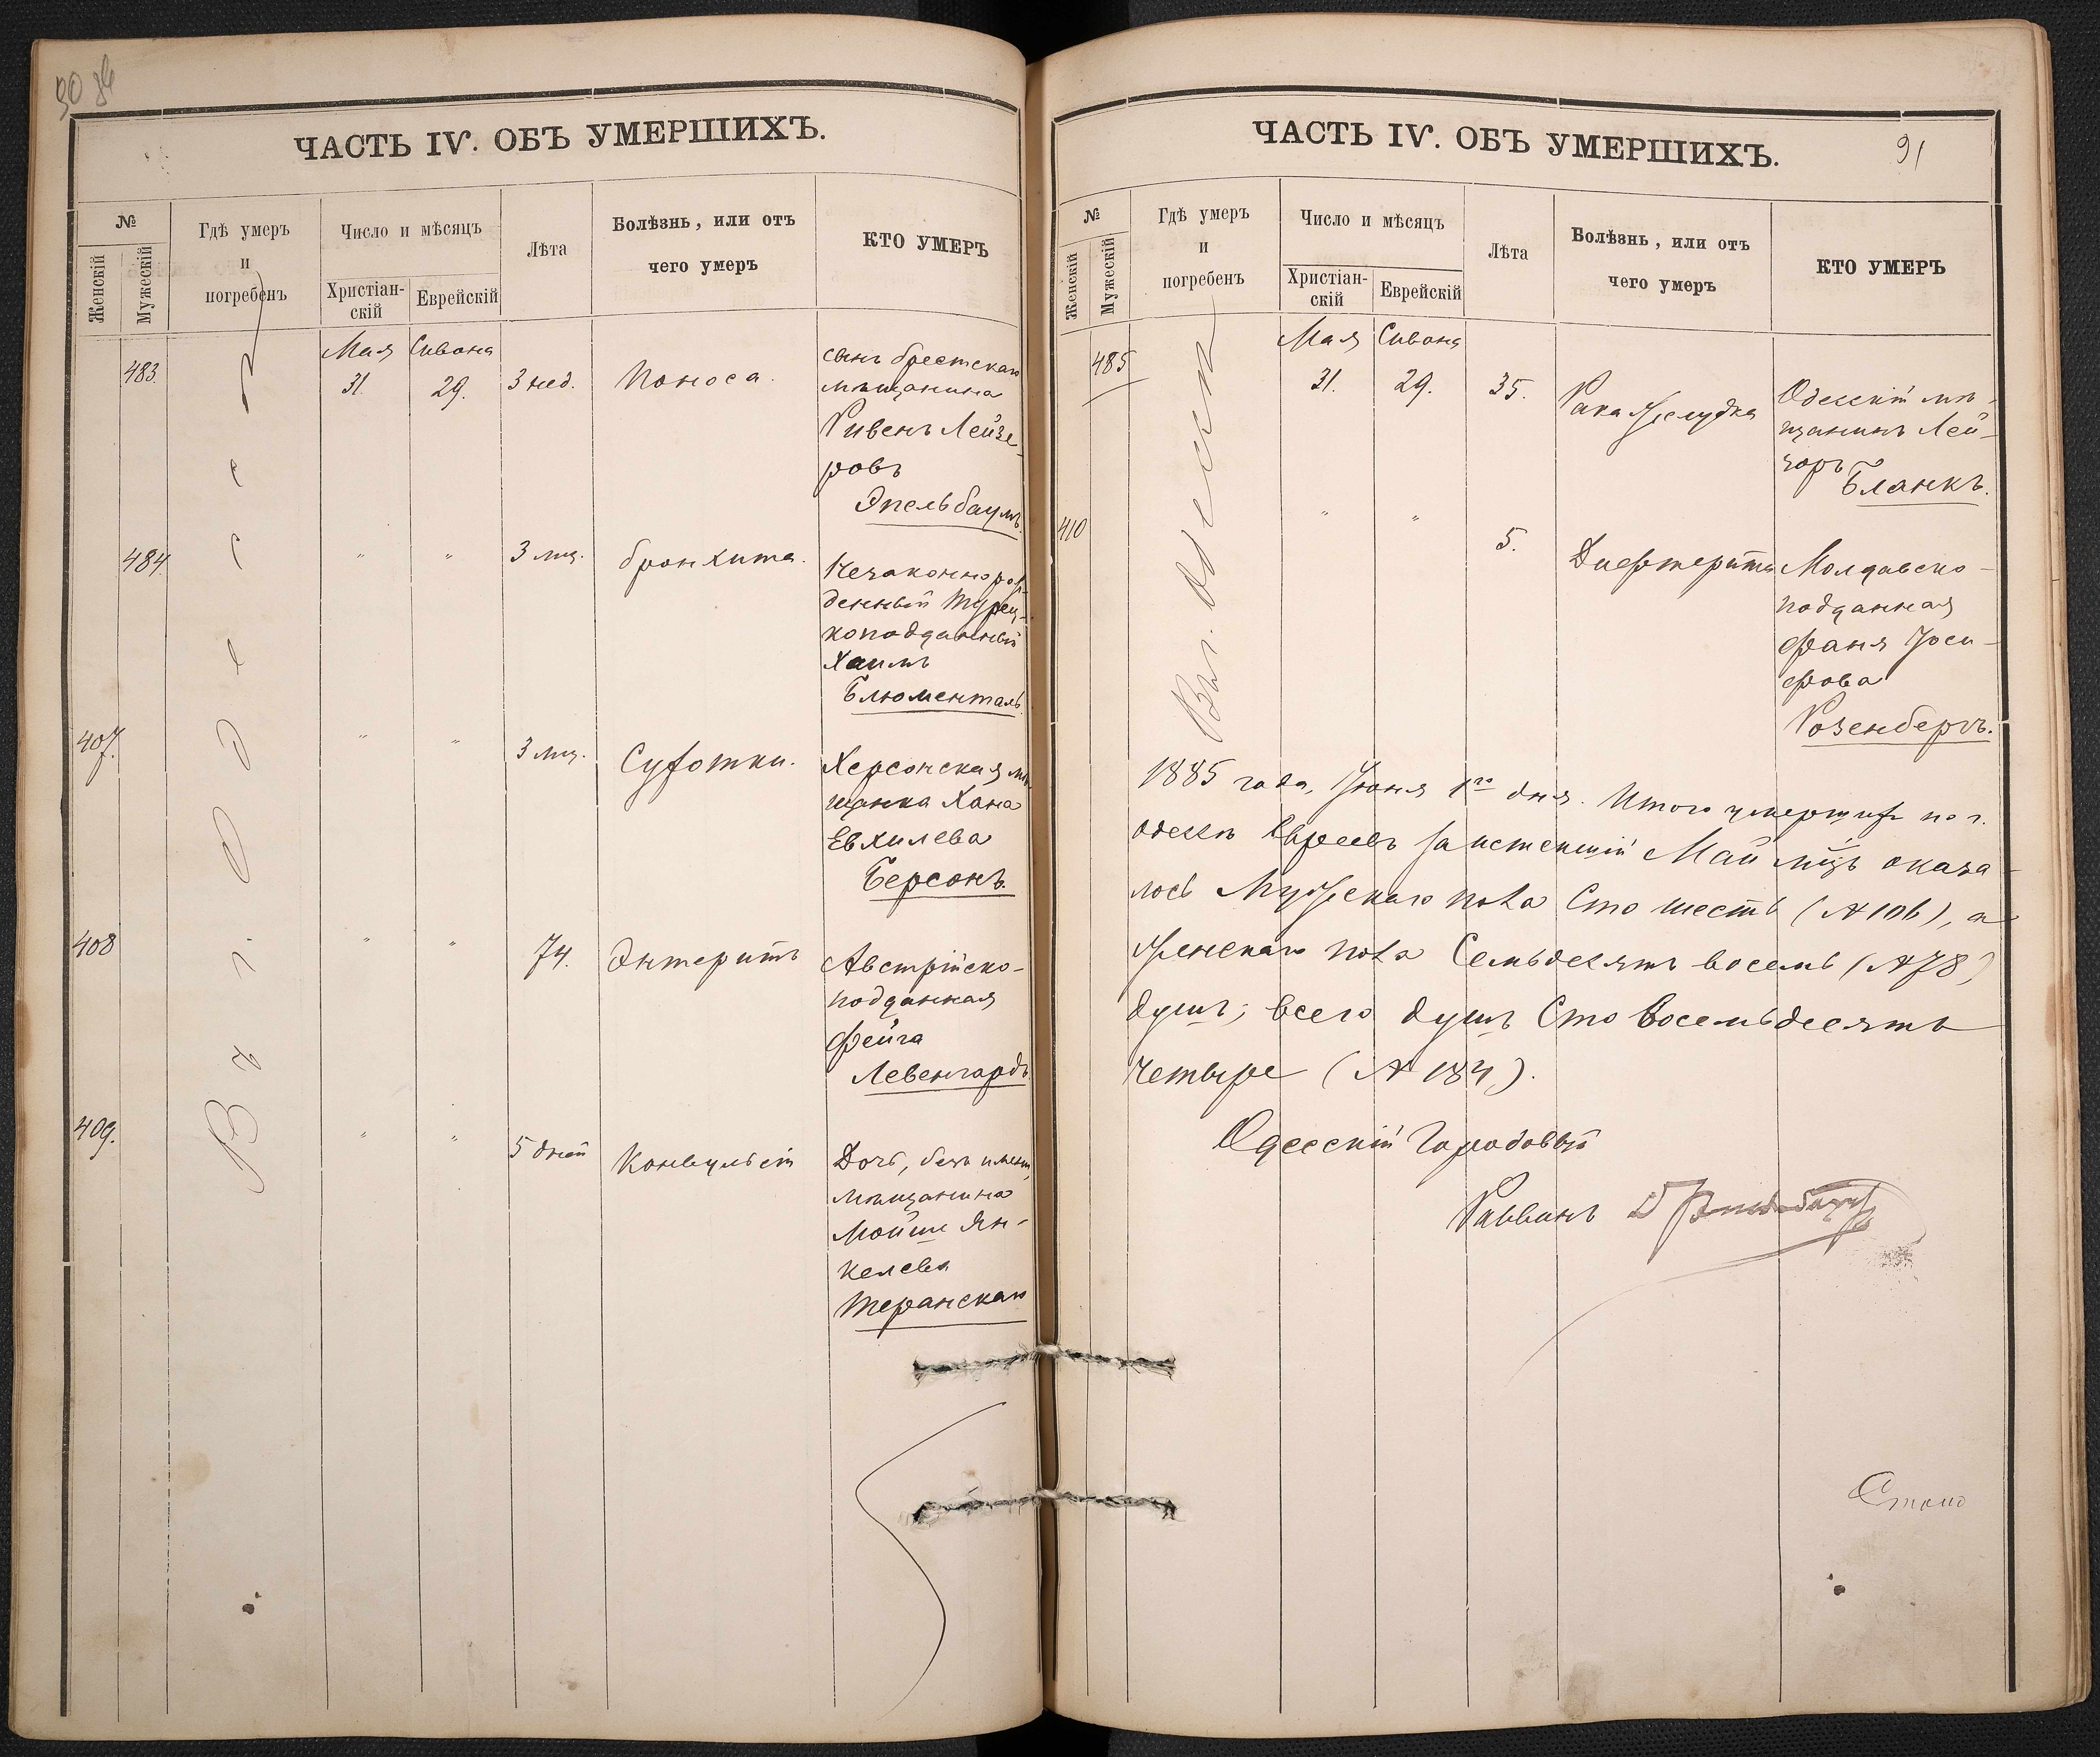 90
ЧАСТЬ IV. ОБЪ УМЕРШИХЪ.
№
Женскій
Мужескій
Гдѣ умеръ
и
погребенъ
Число и мѣсяцъ
Христіан-
скій
Еврейскій
Лѣта
Болѣзнь, или отъ
чего умеръ
КТО УМЕРЪ
Въ г. Одессѣ
Мая Сивона
483. 31. 29. 3 нед. Поноса.
сынъ брестскаго
мѣщанина
Рувенъ Лейзе-
ровъ
Эпельбаумъ
484. " " 3 мц. бронхита.
Незаконнорож-
денный Турец-
коподданный
Хаимъ
Блюменталь.
407. " " 3 мц. Сухотки.
Херсонская мѣ-
щанка Хана
Евхилева
Берсонъ.
408 " " 74. Энтеритъ
Австрійско-
подданная
Фейга
Левенгардъ
409. " " 5 дней Конвульсій
Дочь, безъ имени,
мѣщанина
Мойше Ян-
келева
Теранская
ЧАСТЬ IV. ОБЪ УМЕРШИХЪ.
91
№
Женскій
Мужескій
Гдѣ умеръ
и
погребенъ
Число и мѣсяцъ
Христіан-
скій
Еврейскій
Лѣта
Болѣзнь, или отъ
чего умеръ
КТО УМЕРЪ
Въ г. Одессѣ
Мая Сивона
485 31. 29. 35. Рака желудка
Одесскій мѣ-
щанинъ Лей-
зоръ
Бланкъ.
410 " " 5. Дифтерита
Молдавско-
подданная
Фаня Іоси-
фова
Розенбергъ.
1885 года, Іюня 1го дня. Итого умершихъ по г.
Одессѣ Евреевъ за истекшій Май мцъ оказа-
лось Мужескаго пола Сто шесть (№ 106), а
женскаго пола Семьдесятъ восемь (№ 78)
душъ; всего душъ Сто Восемьдесятъ
четыре (№ 184).
Одесскій Городовый
Раввинъ